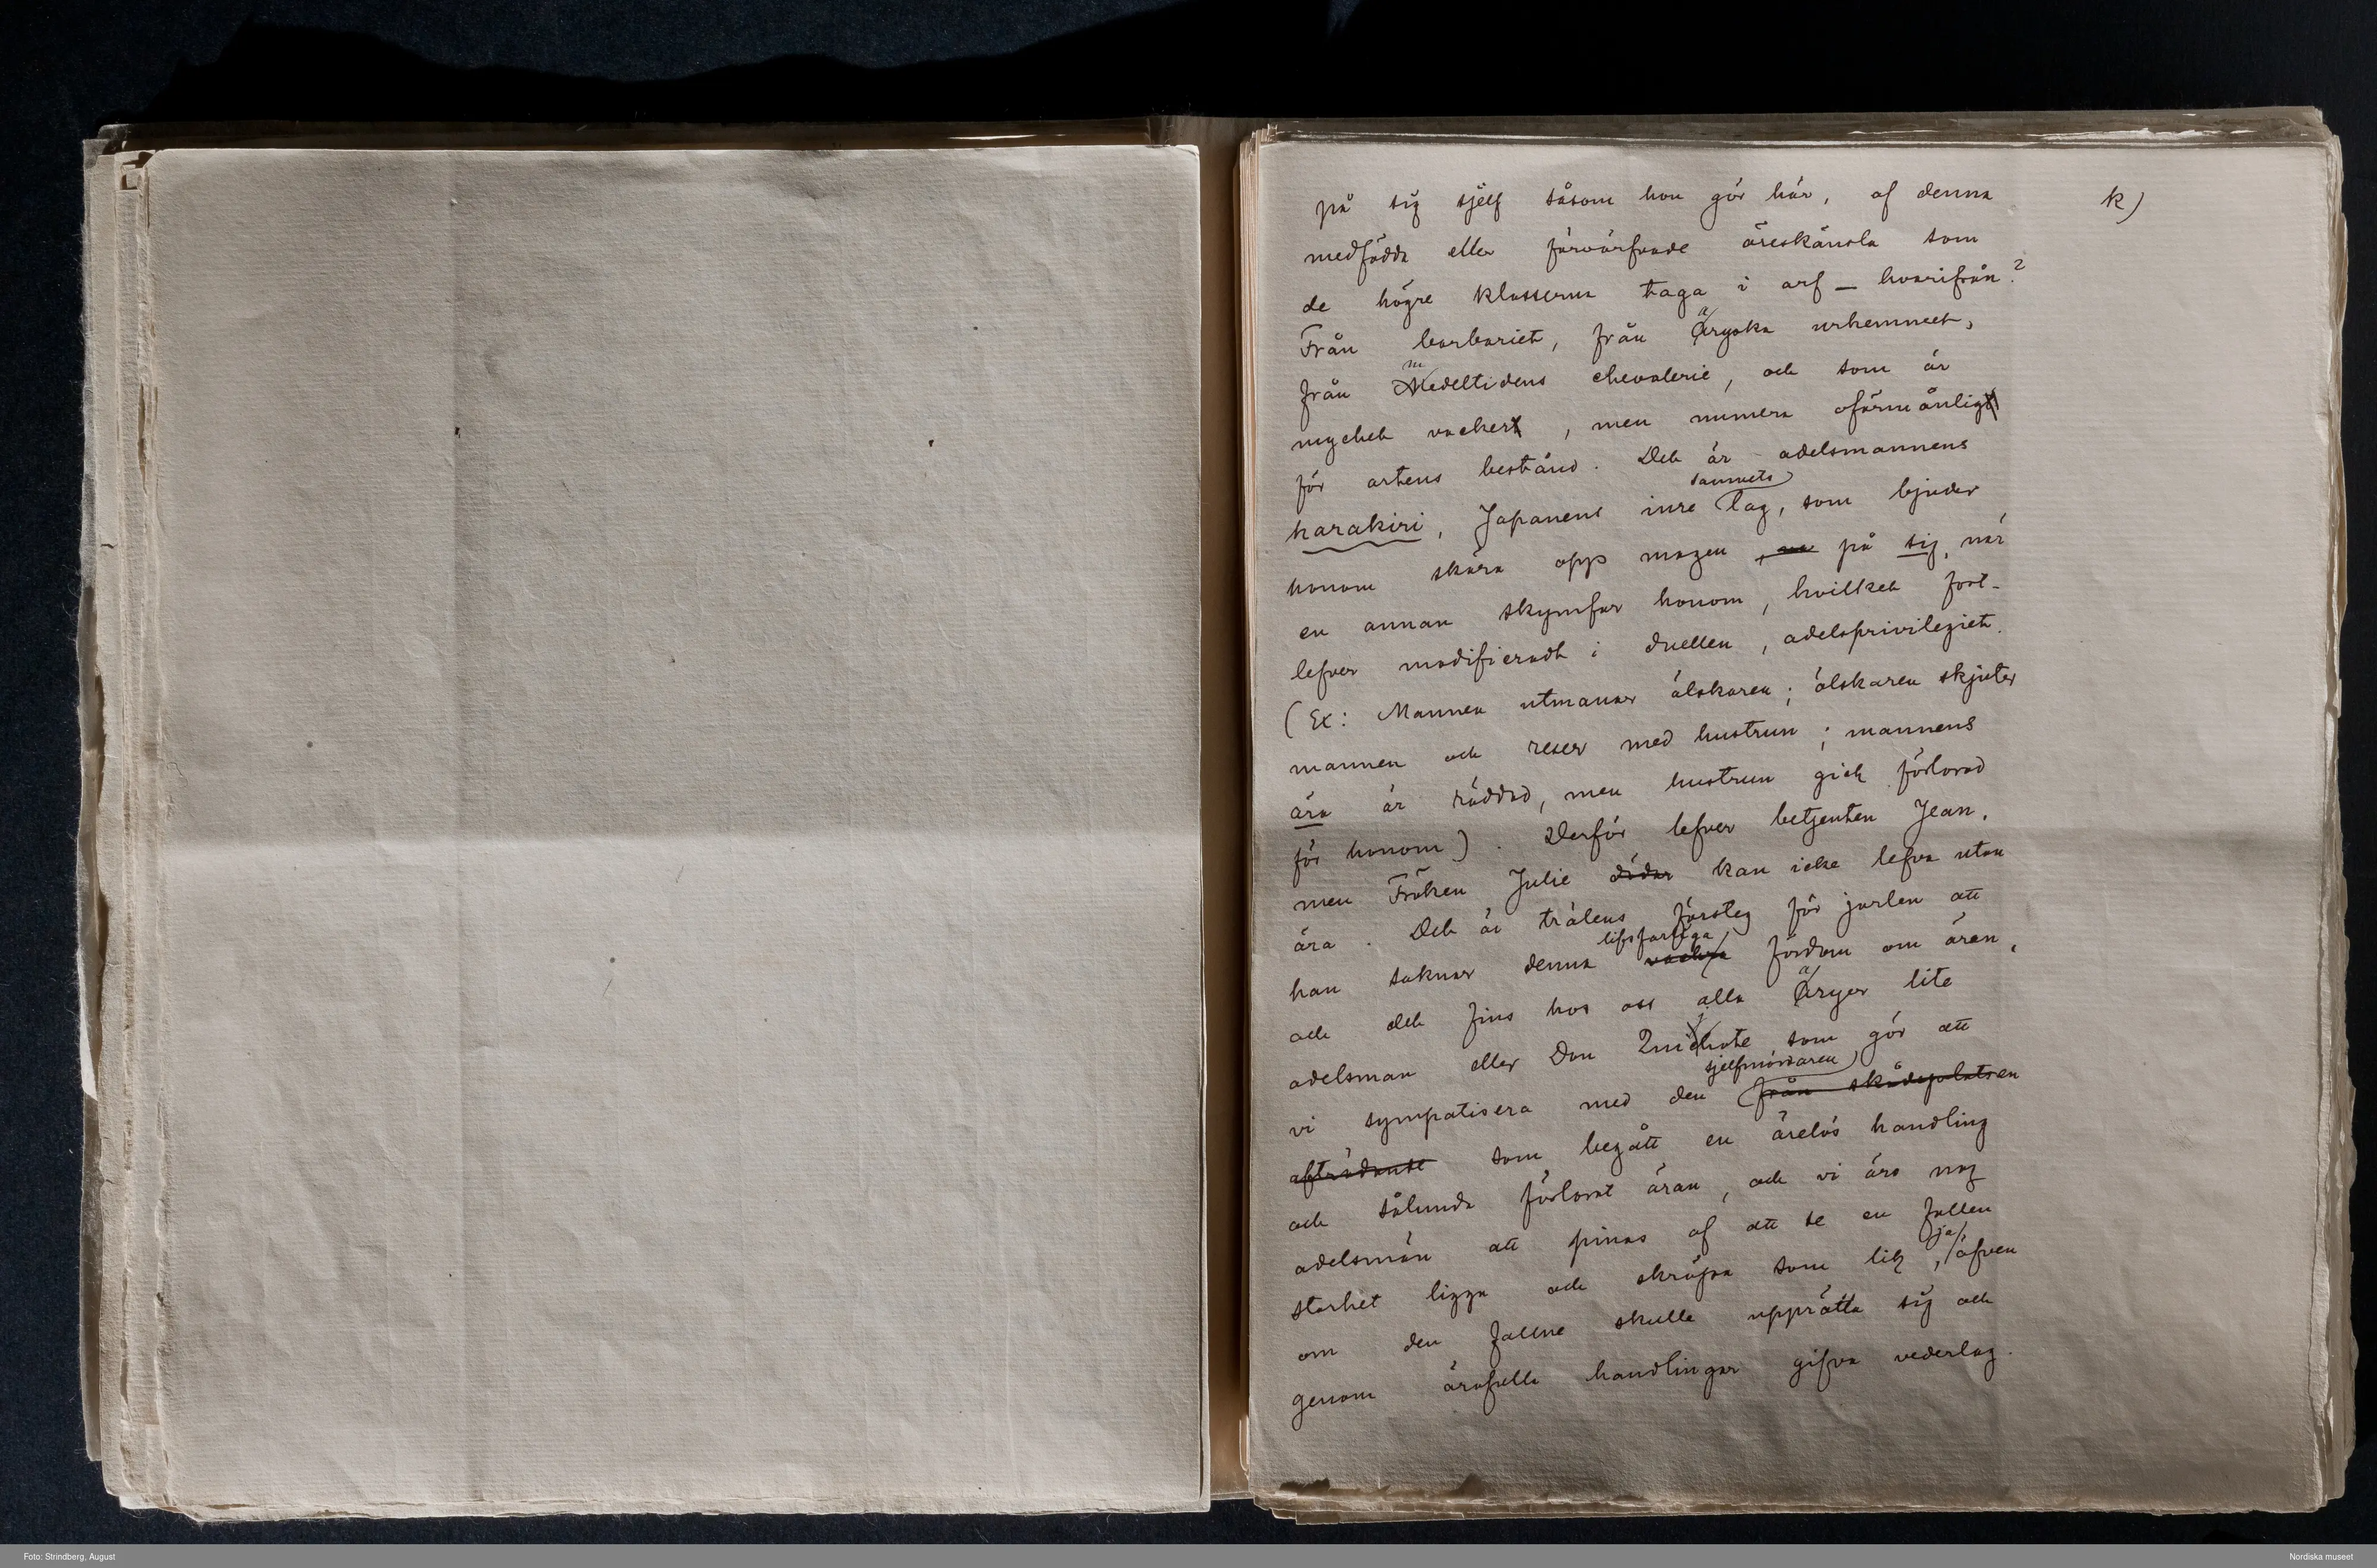 k)
på sig sjelf såsom hon gör här, af denna
medfödda eller förvärfvade äreskänsla som
de högre klasserna taga i arf — hvarifrån?
Från barbariet, från ariska urhemmet,
från medeltidens chevalerie, och som är
mycket vacker, men numera oförmånlig
för artens bestånd. Det är adelsmannens
harakiri, Japanens inre samvets lag, som bjuder
honom skära opp magen på sig, när
en annan skymfar honom, hvilket fort-
lefver modifieradt i duellen, adelsprivilegiet.
(Ex: Mannen utmanar älskaren; älskaren skjuter
mannen och reser med hustrun; mannens
ära är räddad, men hustrun gick förlorad
för honom). Derför lefver betjenten Jean,
men Fröken Julie dödar kan icke lefva utan
ära. Det är trälens försteg för jarlen att
han saknar denna lifsfarliga vackra fördom om äran,
och det fins hos oss alla aryer lite
adelsman eller Don Quijote som gör att
vi sympatisera med den sjelfmördaren från skådeplatsen
afträdande som begått en ärelös handling
och sålunda förlorat äran, och vi äro nog
adelsmän att pinas af att se en fallen
storhet ligga och skräpa som lik, ja äfven
om den fallne skulle upprätta sig och
genom ärofulla handlingar gifva vederlag.
Foto: Strindberg, August
Nordiska museet